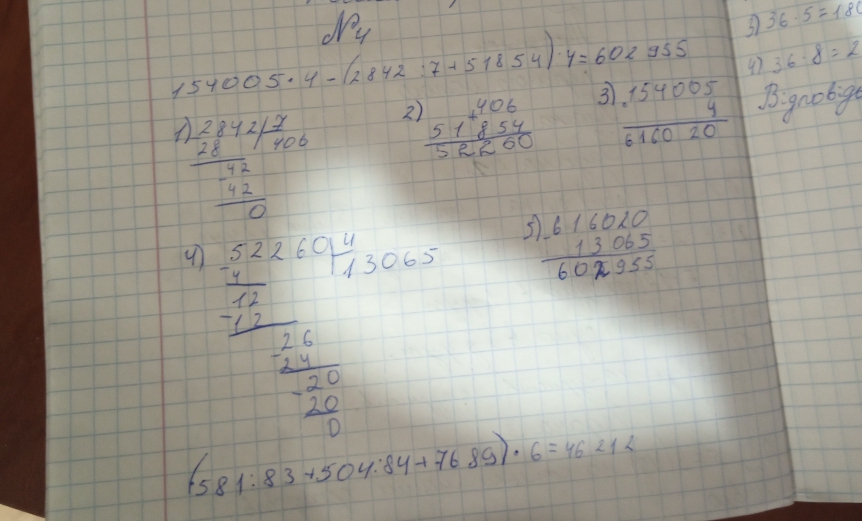 №4
154005·4-(2842:7+51854):4=602955
1) 2842 7
28 406
42
42
0
2) 406
+
51854
52260
3) 154005
4
616020
4) 52260 4
4 13065
12
-12
26
24
20
20
0
5) 616020
13065
602955
(581:83+504:84+7689)·6=46212
3) 36·5=180
4) 36·8=2
Відповідь